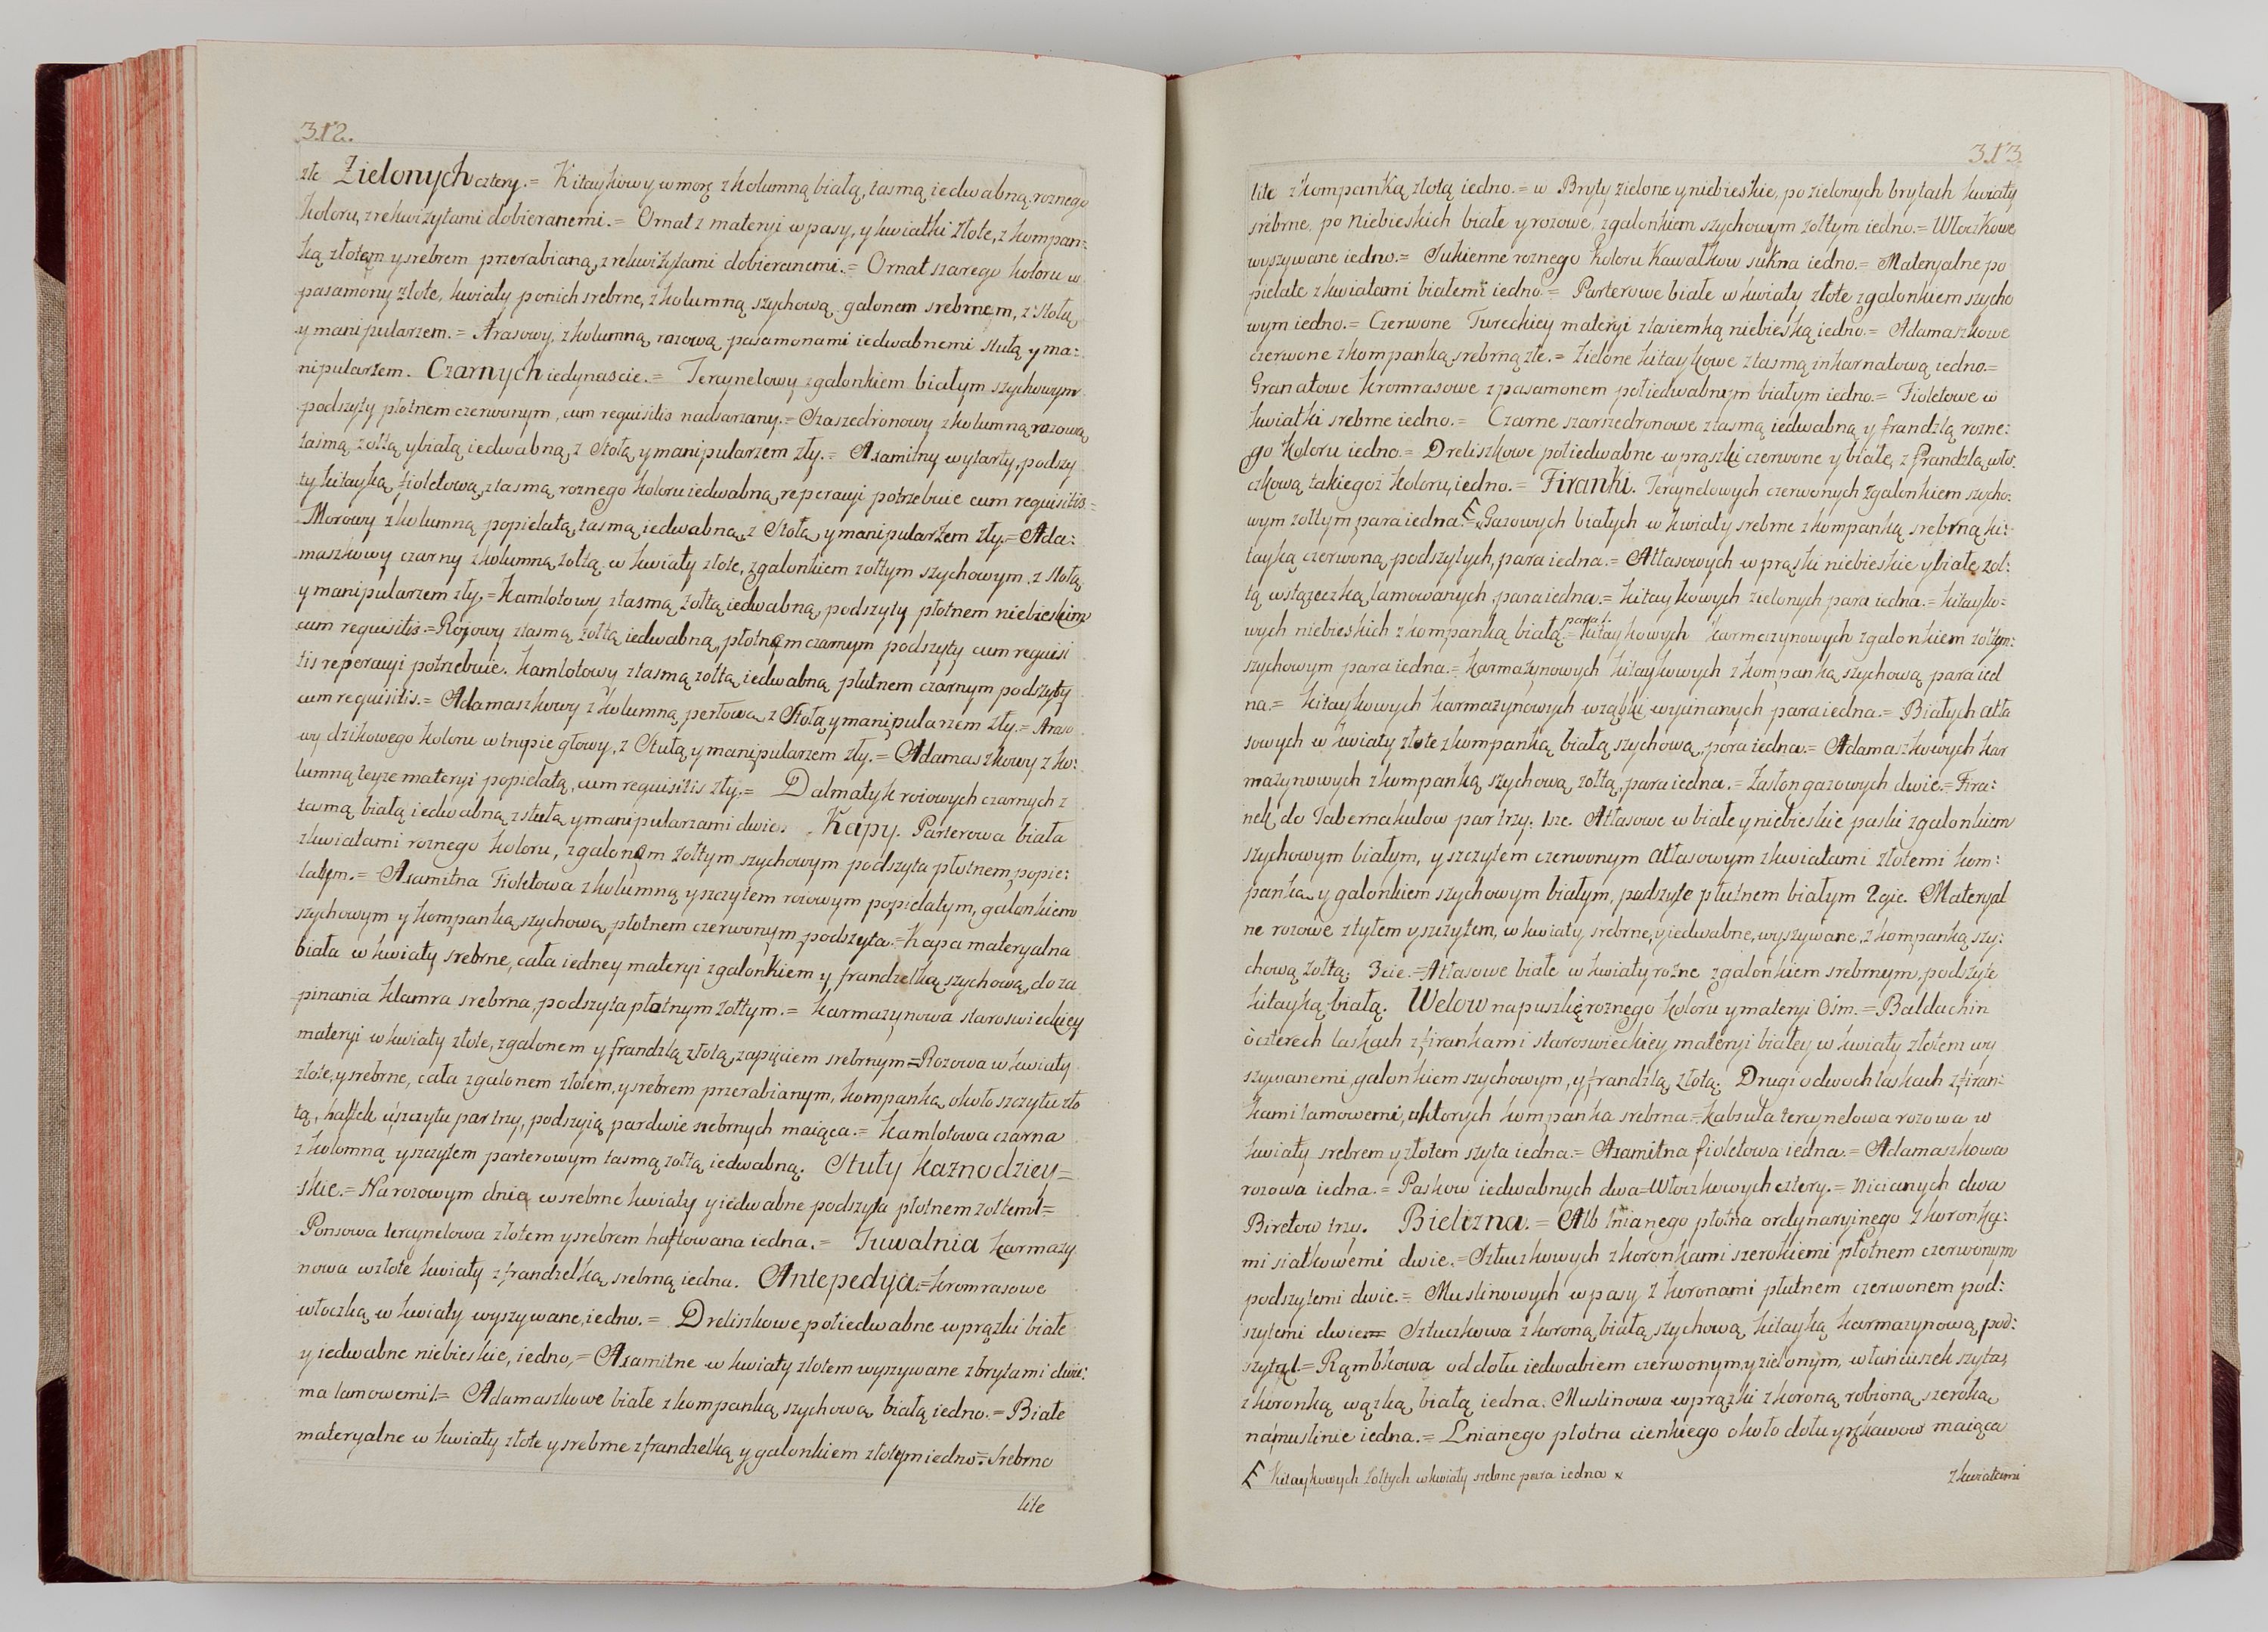 312.
złe Zielonych cztery.= Kitaykowy w morę z kolumną białą, tasmą iedwabną roznego
koloru, z rekwizytami dobieranemi.= Ornat z materyi w pasy, y kwiatki złote, z kompan=
ką złotem y srebrem przerabianą, z rekwizytami dobieranemi.= Ornat szarego koloru w
pasamony złote, kwiaty ponich srebrne, z kolumną szychową galonem srebrnem, z Stołą
y manipularzem.= Arasowy, z kolumną razową pasamonami iedwabnemi stułą y ma=
nipularzem. Czarnych iedynascie.= Tercynelowy z galonkiem białym szychowym
podszyty płotnem czerwonym, cum requisitis nadsarzany.= Szaszedronowy z kolumną razową
tasmą zołtą y białą iedwabną, z Stołą y manipularzem zły.= Axamitny wytarty, podszy
ty kitayką fioletową, z tasmą roznego koloru iedwabną, reperacyi potrzebuie cum requisitis.=
Morowy z kolumną popielatą, tasmą iedwabną, z Stołą y manipularzem zły.= Ada=
maszkowy czarny z kolumną zołtą w kwiaty złote, z galonkiem zołtym szychowym, z Stołą
y manipularzem zły.= Kamlotowy z tasmą zołtą iedwabną, podszyty płotnem niebieskim
cum requisitis.= Rojowy z tasmą zołtą iedwabną, płotnem czarnym podszyty cum requisi
tis reperacyi potrzebuie. Kamlotowy z tasmą zołtą iedwabną płutnem czarnym podszyty
cum requisitis.= Adamaszkowy z kolumną perłową z Stołą y manipularzem zły.= Araso
wy dzikowego koloru w trupie głowy, z Stułą y manipularzem zły.= Adamaszkowy z ko=
lumną teyze materyi popielatą, cum requisitis zły.= Dalmatyk roiowych czarnych z
tasmą białą iedwabną z stułą y manipularzami dwie. Kapy. Parterowa biała
z kwiatami roznego koloru, z galonem zołtym szychowym podszyta płotnem popie=
latym.= Axamitna Fioletowa z kolumną y szczytem rozowym popielatym, galonkiem
szychowym y kompanką szychową, płotnem czerwonym podszyta.= Kapa materyalna
biała w kwiaty srebrne, cała iedney materyi z galonkiem y frandzelką szychową, do za
pinania klamra srebrna, podszyta płotnym zołtym.= Karmazynowa staroswieckiey
materyi w kwiaty złote, z galonem y frandzlą złotą, zapięciem srebrnym.= Rozowa w kwiaty
złote, y srebrne, cała z galonem złotem, y srebrem przerabianym, kompanką około szczytu zło
tą, haftek u szczytu par trzy, pod szyią par dwie srebrnych maiąca.= Kamlotowa czarna
z kolomną y szczytem parterowym tasmą zołtą iedwabną. Stuły Kaznodziey=
skie.= Na rozowym dnie w srebrne kwiaty y iedwabne podszyta płotnem zołtem 1=
Ponsowa tercynelowa złotem y srebrem haftowana iedna.= Tuwalnia karmazy
nowa w złote kwiaty z frandzelką srebrną iedna. Antepedya.= Kromrasowe
włoczką w kwiaty wyszywane, iedno.= Dreliszkowe połiedwabne w prązki białe
y iedwabne niebieskie, iedno,= Axamitne w kwiaty złotem wyszywane z brytami dwie=
ma lamowemi 1.= Adamaszkowe białe z kompanką szychową białą iedno.= Białe
materyalne w kwiaty złote y srebrne z frandzelką y galonkiem złotym iedno.= Srebrno
lite
313
lite z kompanką złotą iedno.= w Bryty zielone y niebieskie, po zielonych brytach kwiaty
srebrne, po niebieskich białe y rozowe, z galonkiem szychowym zołtym iedno.= Włoczkowe
wyszywane iedno.= Sukienne roznego koloru Kawałkow sukna iedno.= Materyalne po
pielate z kwiatami białemi iedno.= Parterowe białe w kwiaty złote z galonkiem szycho
wym iedno.= Czerwone Tureckiey materyi z tasiemką niebieską iedno.= Adamaszkowe
czerwone z kompanką srebrną złe.= Zielone kitaykowe z tasmą inkarnatową iedno.=
Granatowe kromrasowe z pasamonem połiedwabnym białym iedno.= Fioletowe w
kwiatki srebrne iedno.= Czarne szarszedronowe z tasmą iedwabną y frandzlą rozne=
go koloru iedno.= Dreliszkowe połiedwabne w prązki czerwone y białe, z frandzlą wło=
czkową takiegoz koloru, iedno.= Firanki. Tercynelowych czerwonych z galonkiem szycho=
wym zołtym para iedna.= Gazowych białych w kwiaty srebrne z kompanką srebrną ki=
tayką czerwoną podszytych, para iedna.= Attasowych w prąski niebieskie y białe, zoł=
tą wstązeczką lamowanych, para iedna.= Kitaykowych zielonych para iedna.= Kitayko=
wych niebieskich z kompanką białą para 1.= Kitaykowych karmazynowych z galonkiem zołtym=
szychowym para iedna.= Karmazynowych kitaykowych z kompanką szychową para ied
na.= Kitaykowych karmazynowych w ząbki wycinanych para iedna.= Białych atła
sowych w kwiaty złote z kompanką białą szychową, para iedna.= Adamaszkowych kar
mazynowych z kompanką szychową zołtą, para iedna.= Zasłon gazowych dwie.= Fira=
nek do Tabernakulow par trzy: 1sze. Atłasowe w białe y niebieskie paski z galonkiem
szychowym białym, y szczytem czerwonym atłasowym z kwiatami złotemi kom=
panką y galonkiem szychowym białym, podszyte płutnem białym 2gie. Materyal
ne rozowe z tyłem y szczytem, w kwiaty srebrne, y iedwabne, wyszywane, z kompanką szy=
chową zołtą; 3cie.= Atłasowe białe w kwiaty rozne z galonkiem srebrnym, podszyte
kitayką białą. Welow na puszkię roznego koloru y materyi Osm.= Baldachin
o czterech laskach z firankami staroswieckiey materyi białey w kwiaty złotem wy
szywanemi, galonkiem szychowym, y frandzlą złotą. Drugi o dwoch laskach z firan=
kami lamowemi, u ktorych kompanka srebrna.= Kabsuła tercynelowa rozowa w
kwiaty srebrem y złotem szyta iedna.= Axamitna fioletowa iedna.= Adamaszkowa
rozowa iedna.= Paskow iedwabnych dwa.= Włoczkowych cztery.= Nicianych dwa
Biretow trzy. Bielizna.= Alb lnianego płotna ordynaryinego z koronka=
mi siatkowemi dwie.= Sztuczkowych z koronkami szerokiemi płotnem czerwonym
podszytemi dwie.= Muslinowych w pasy z koronami płutnem czerwonem pod=
szytemi dwie= Sztuczkowa z koroną białą szychową kitayką karmazynową pod=
szyta 1.= Rąmbkowa od dołu iedwabiem czerwonym, y zielonym, w łancuszek szyta,
z koronką wązką białą iedna. Muslinowa w prązki z koroną robioną szeroką
na muslinie iedna.= Lnianego płotna cienkiego około dołu y rękawow maiąca
Kitaykowych Zołtych w kwiaty srebrne para iedna x
z kwiatami